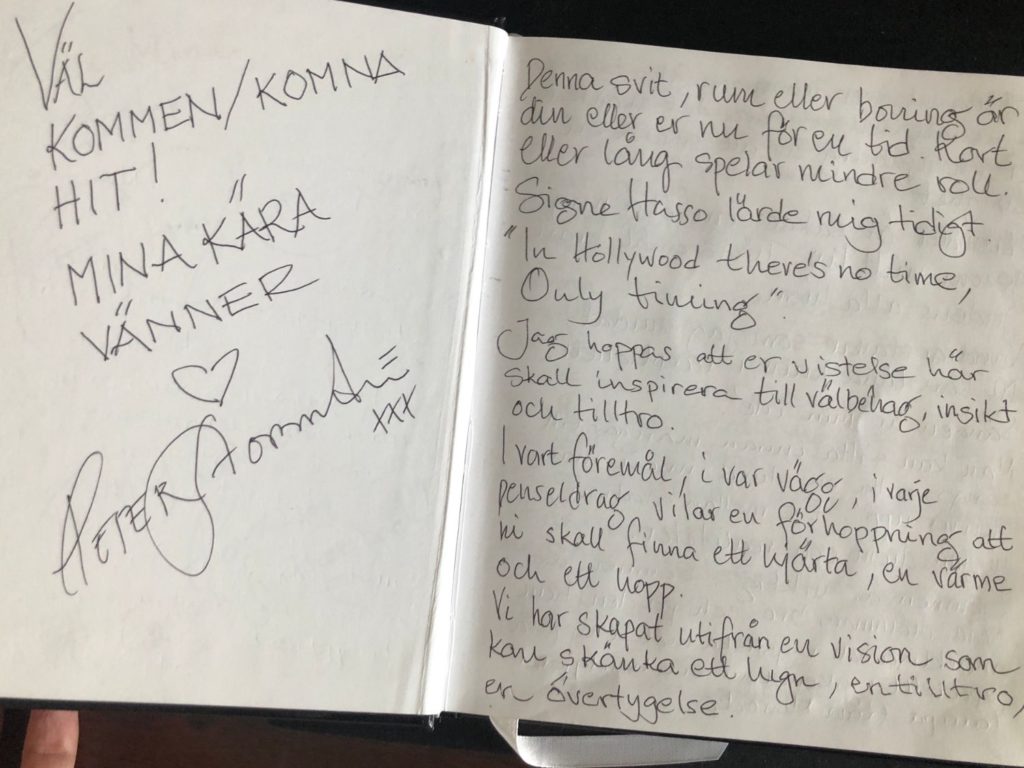 VÄL
KOMMEN/KOMNA
HIT!
MINA KÄRA
VÄNNER
PETER Stormare
XXX
Denna svit, rum eller boning är
din eller er nu för en tid. Kort
eller lång spelar mindre roll.
Signe Hasso lärde mig tidigt.
"In Hollywood there's no time,
Only timing".
Jag hoppas att er vistelse här
skall inspirera till välbehag, insikt
och tilltro.
I vart föremål, i var vägg, i varje
penseldrag vilar en förhoppning att
ni skall finna ett hjärta, en värme
och ett hopp.
Vi har skapat utifrån en vision som
kan skänka ett lugn, en tilltro,
en övertygelse.